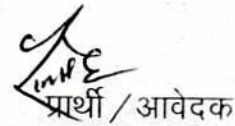 प्रार्थी / आवेदक